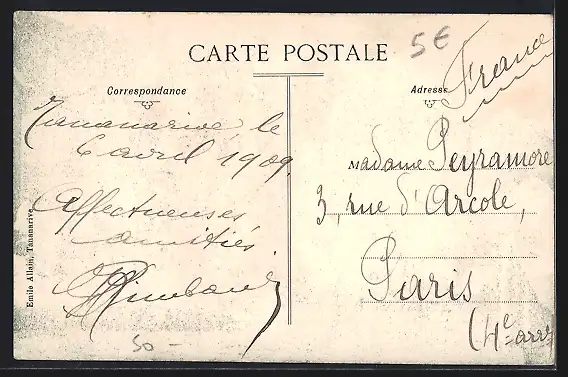 CARTE POSTALE
5€
France
Correspondance
Adresse
Tananarive, le
6 avril 1909.
Affectueuses
amitiés.
Madame Peyramore
3, rue d'Arcole,
Paris
(4e arrt
Emile Allain, Tananarive
50 -